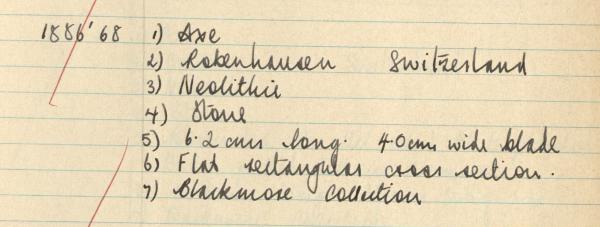 1886'68 1) Axe
2) Robenhausen Switzerland
3) Neolithic
4) Stone
5) 6.2 cms long. 4.0cms wide blade
6) Flat rectangular cross section.
7) Blackmore Collection